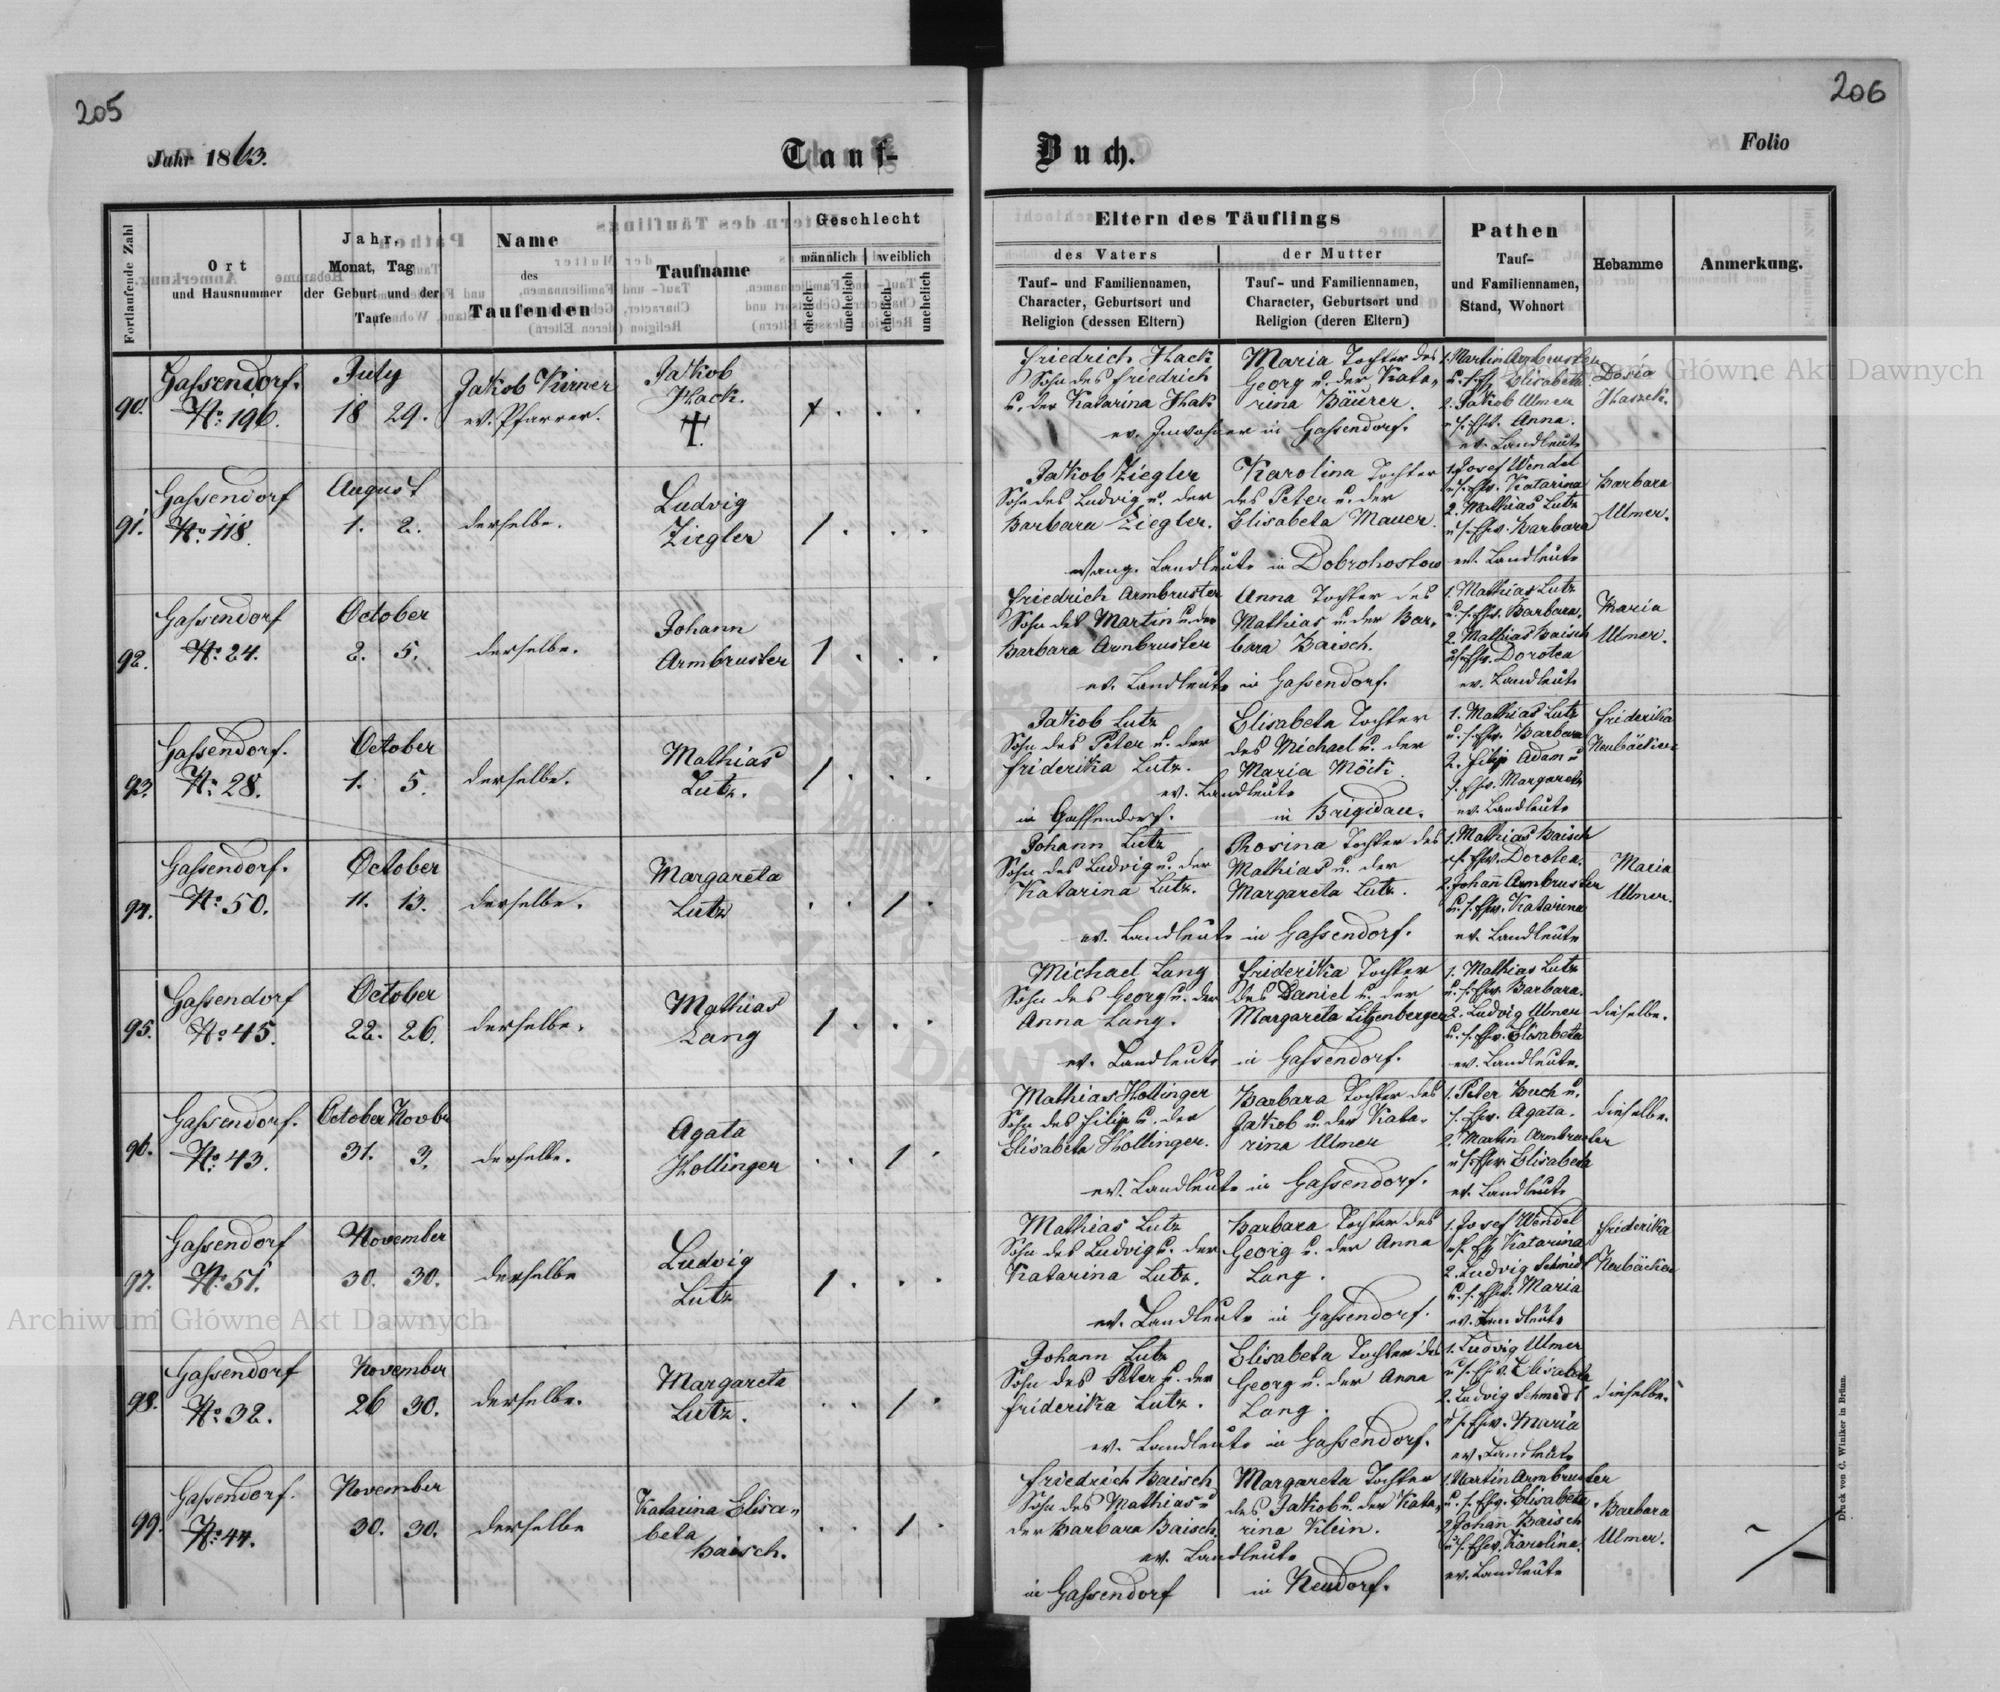 205
206
Jahr 1863.
Tauf-
Buch.
Folio
Fortlaufende Zahl
Ort
und Hausnummer
Jahr,
Monat, Tag
der Geburt und der
Taufe
Name
des
Taufenden
Taufname
Geschlecht
männlich
weiblich
ehelich
unehelich
ehelich
unehelich
Eltern des Täuflings
des Vaters
Tauf- und Familiennamen,
Character, Geburtsort und
Religion (dessen Eltern)
der Mutter
Tauf- und Familiennamen,
Character, Geburtsort und
Religion (deren Eltern)
Pathen
Tauf-
und Familiennamen,
Stand, Wohnort
Hebamme
Anmerkung.
90.
Gassendorf.
No. 196.
July
18 29.
Jakob Kirner
ev. Pfarrer.
Jakob
Hack.
Friedrich Hack
Sohn des Friedrich
u. der Katarina Hak
Maria Tochter des
Georg u. der Kata-
rina Baurer.
ev. Inwohner in Gassendorf.
1. Martin Armbruster
u. s. Elisabeth
2. Jakob Ulmer
u. s. Ehw. Anna.
ev. Landleute
Dosia
91.
Gassendorf
No. 118.
August
1. 2.
derselbe.
Ludvig
Ziegler
Jakob Ziegler
Sohn des Ludvig u. der
Barbara Ziegler.
Karolina Tochter
des Peter u. der
Elisabeta Mauer.
evang. Landleute in Dobrohostow
1. Josef Wendel
u. s. Ehw. Katarina
2. Mathias Lutz
u. s. Ehw. Barbara
ev. Landleute
Barbara
Ulmer.
92.
Gassendorf
No. 24.
October
2. 5.
derselbe.
Johann
Armbruster
Friedrich Armbruster
Sohn des Martin u. der
Barbara Armbruster
Anna Tochter des
Mathias u. der Bar-
bara Baisch.
ev. Landleute in Gassendorf.
1. Mathias Lutz
u. s. Ehw. Barbara.
2. Mathias Baisch
u. s. Ehw. Dorotea
ev. Landleute
Maria
Ulmer.
93.
Gassendorf.
No. 28.
October
1. 5.
derselbe.
Mathias
Lutz.
Jakob Lutz
Sohn des Peter u. der
Friderika Lutz.
Elisabeta Tochter
des Michael u. der
Maria Möck.
ev. Landleute
in Gassendorf.
in Brigidau.
1. Mathias Lutz
u. s. Ehw. Barbara
2. Filip Adam u
s. Ehw. Margareta
ev. Landleute
Friderika
94.
Gassendorf.
No. 50.
October
11. 13.
derselbe.
Margareta
Lutz
Johann Lutz
Sohn des Ludvig u. der
Katarina Lutz.
Rosina Tochter des
Mathias u. der
Margareta Lutz.
ev. Landleute in Gassendorf.
1. Mathias Baisch
u. s. Ehw. Dorotea.
2. Johan̄ Armbruster
u. s. Ehw. Katarina
ev. Landleute
Maria
Ulmer.
95.
Gassendorf
No. 45.
October
22. 26.
derselbe.
Mathias
Lang
Michael Lang
Sohn des Georg u. der
Anna Lang.
Friderika Tochter
des Daniel u. der
Margareta Litzenberger
ev. Landleute in Gassendorf.
1. Mathias Lutz
u. s. Ehw. Barbara.
2. Ludvig Ulmer
u. s. Ehw. Elisabeta
ev. Landleute.
dieselbe.
96.
Gassendorf.
No. 43.
October Novbr
31. 3.
derselbe.
Agata
Hollinger
Mathias Hollinger
Sohn des Filip u. der
Elisabeta Hollinger.
Barbara Tochter des
Jakob u. der Kata-
rina Ulmer
ev. Landleute in Gassendorf.
1. Peter Buch u.
s. Ehw. Agata.
2. Martin Armbruster
u. s. Ehw. Elisabeta
ev. Landleute
dieselbe.
97.
Gassendorf
No. 51.
November
30. 30.
derselbe
Ludvig
Lutz
Mathias Lutz
Sohn des Ludvig u. der
Katarina Lutz.
Barbara Tochter des
Georg u. der Anna
Lang.
ev. Landleute in Gassendorf.
1. Josef Wendel
u. s. Katarina
2. Ludvig Schmidt
u. s. Ehw. Maria
ev. Landleute
Friderika
98.
Gassendorf
No. 32.
November
26 30.
derselbe.
Margareta
Lutz.
Johann Lutz
Sohn des Peter u. der
Friderika Lutz.
Elisabeta Tochter des
Georg u. der Anna
Lang.
ev. Landleute in Gassendorf.
1. Ludvig Ulmer
u. s. Ehw. Elisabeta
2. Ludvig Schmidt
u. s. Ehw. Maria
ev. Landleute
dieselbe.
99.
Gassendorf.
No. 44.
November
30. 30.
derselbe
Katarina Elisa-
beta
Baisch.
Friedrich Baisch
Sohn des Mathias u
der Barbara Baisch.
Margareta Tochter
des Jakob u. der Kata-
rina Klein.
ev. Landleute
in Gassendorf
in Neudorf.
1. Martin Armbruster
u. s. Ehw. Elisabeta.
2. Johan̄ Baisch
u. s. Ehw. Karolina.
ev. Landleute
Barbara
Ulmer.
Druck von C. Winiker in Brünn.
Archiwum Główne Akt Dawnych
Archiwum Główne Akt Dawnych